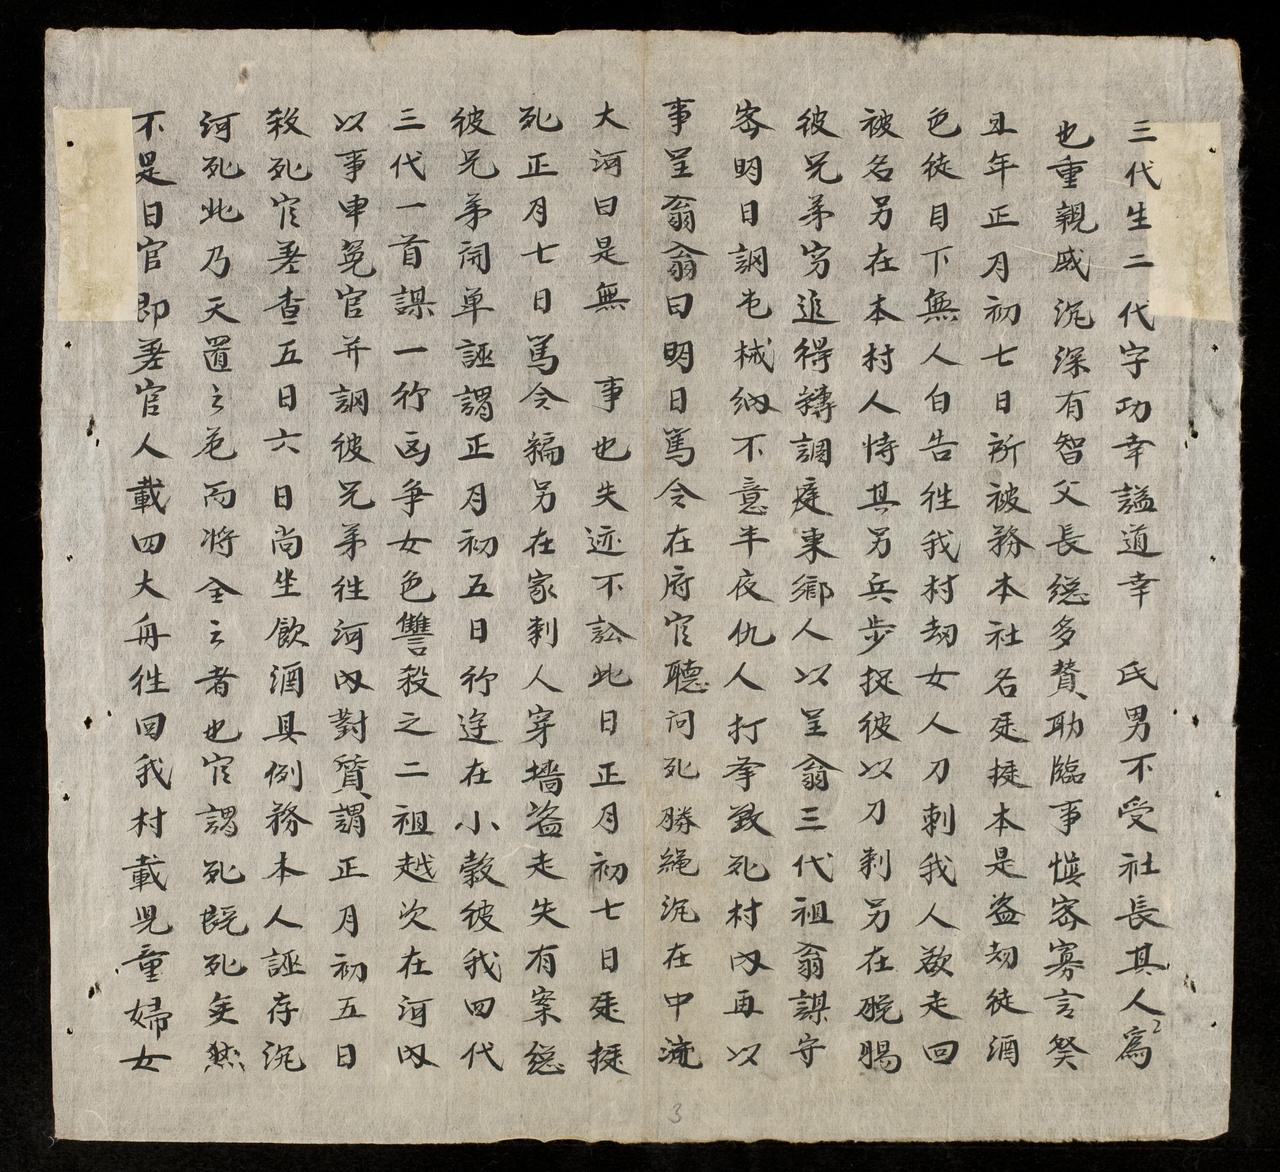 三代生二代字功幸謚道幸 氏男不受社長其人為
也重親戚沉深有智父長總多贊助臨事慎密寡言癸
丑年正月初七日所被務本社名廷挺本是盜刼徒酒
色徒目下無人白告徃我村刼女人刀刺我人欲走回
被名另在本村人恃其另兵步捉彼以刀刺另在脫腸
彼兄弟窮追得轉調庭東鄉人以呈翁三代祖翁謀守
密明日詗屯械納不意半夜仇人打拏致死村内再以
事呈翁翁曰明日篤令在府官聽問死勝繩沉在中流
大河曰是無 事也失迹不訟此日正月初七日廷挺
死正月七日篤令稿另在家刺人穿墻盜走失有案總
彼兄弟闹单誣謂正月初五日行迬在小穀彼我四代
三代一首謀一行凶争女色讐殺之二祖越次在河内
以事申冤官并詗彼兄弟徃河内對質謂正月初五日
殺死官差查五日六日尚坐飲酒具例務本人誣存沉
河死此乃天置之危而将全之者也官謂死既死矣然
不是日官即差官人載四大舟徃回我村載児童婦女
2
3